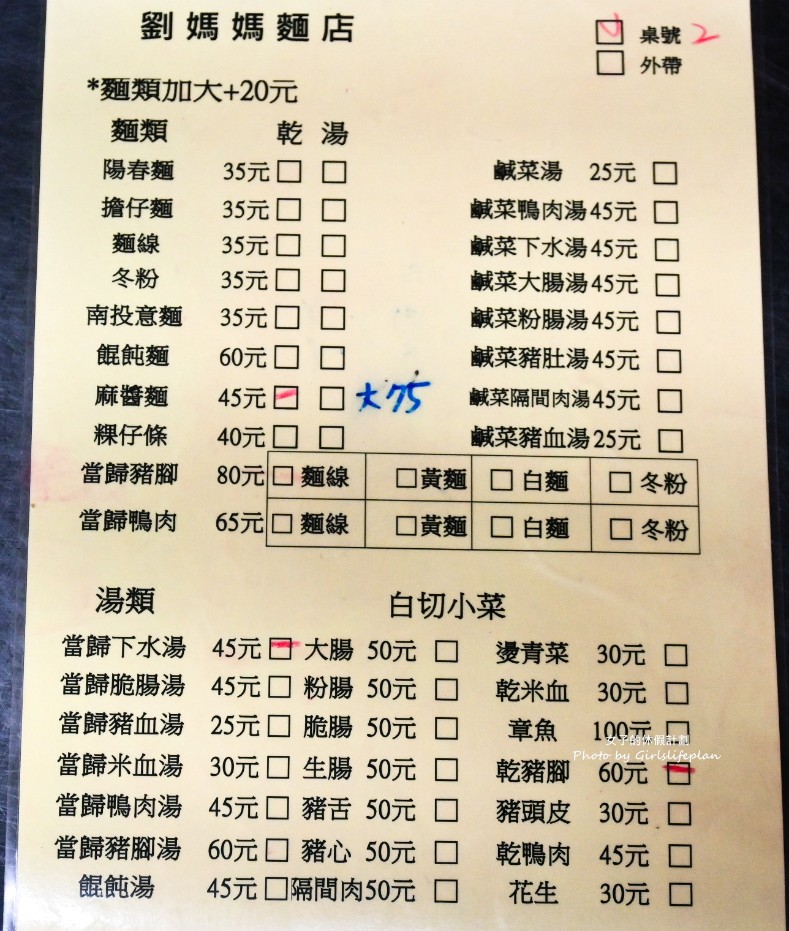 劉媽媽麵店
☑ 桌號 2
☐ 外帶
*麵類加大+20元
麵類 乾 湯
陽春麵 35元 ☐ ☐ 鹹菜湯 25元 ☐
擔仔麵 35元 ☐ ☐ 鹹菜鴨肉湯 45元 ☐
麵線 35元 ☐ ☐ 鹹菜下水湯 45元 ☐
冬粉 35元 ☐ ☐ 鹹菜大腸湯 45元 ☐
南投意麵 35元 ☐ ☐ 鹹菜粉腸湯 45元 ☐
餛飩麵 60元 ☐ ☐ 鹹菜豬肚湯 45元 ☐
麻醬麵 45元 ☑ ☐ 大75 鹹菜隔間肉湯 45元 ☐
粿仔條 40元 ☐ ☐ 鹹菜豬血湯 25元 ☐
當歸豬腳 80元 ☐ 麵線 ☐ 黃麵 ☐ 白麵 ☐ 冬粉
當歸鴨肉 65元 ☐ 麵線 ☐ 黃麵 ☐ 白麵 ☐ 冬粉
湯類 白切小菜
當歸下水湯 45元 ☑ 大腸 50元 ☐ 燙青菜 30元 ☐
當歸脆腸湯 45元 ☐ 粉腸 50元 ☐ 乾米血 30元 ☐
當歸豬血湯 25元 ☐ 脆腸 50元 ☐ 章魚 100元 ☐
女子的休假計劃
Photo by Girlslifeplan
當歸米血湯 30元 ☐ 生腸 50元 ☐ 乾豬腳 60元 ☑
當歸鴨肉湯 45元 ☐ 豬舌 50元 ☐ 豬頭皮 30元 ☐
當歸豬腳湯 60元 ☐ 豬心 50元 ☐ 乾鴨肉 45元 ☐
餛飩湯 45元 ☐ 隔間肉 50元 ☐ 花生 30元 ☐